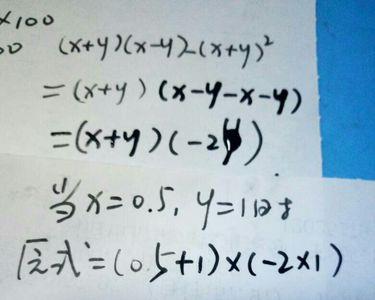 ×100
(x+y)(x-y)-(x+y)²
=(x+y)(x-y-x-y)
=(x+y)(-2y)
当x=0.5,y=1时
原式=(0.5+1)×(-2×1)